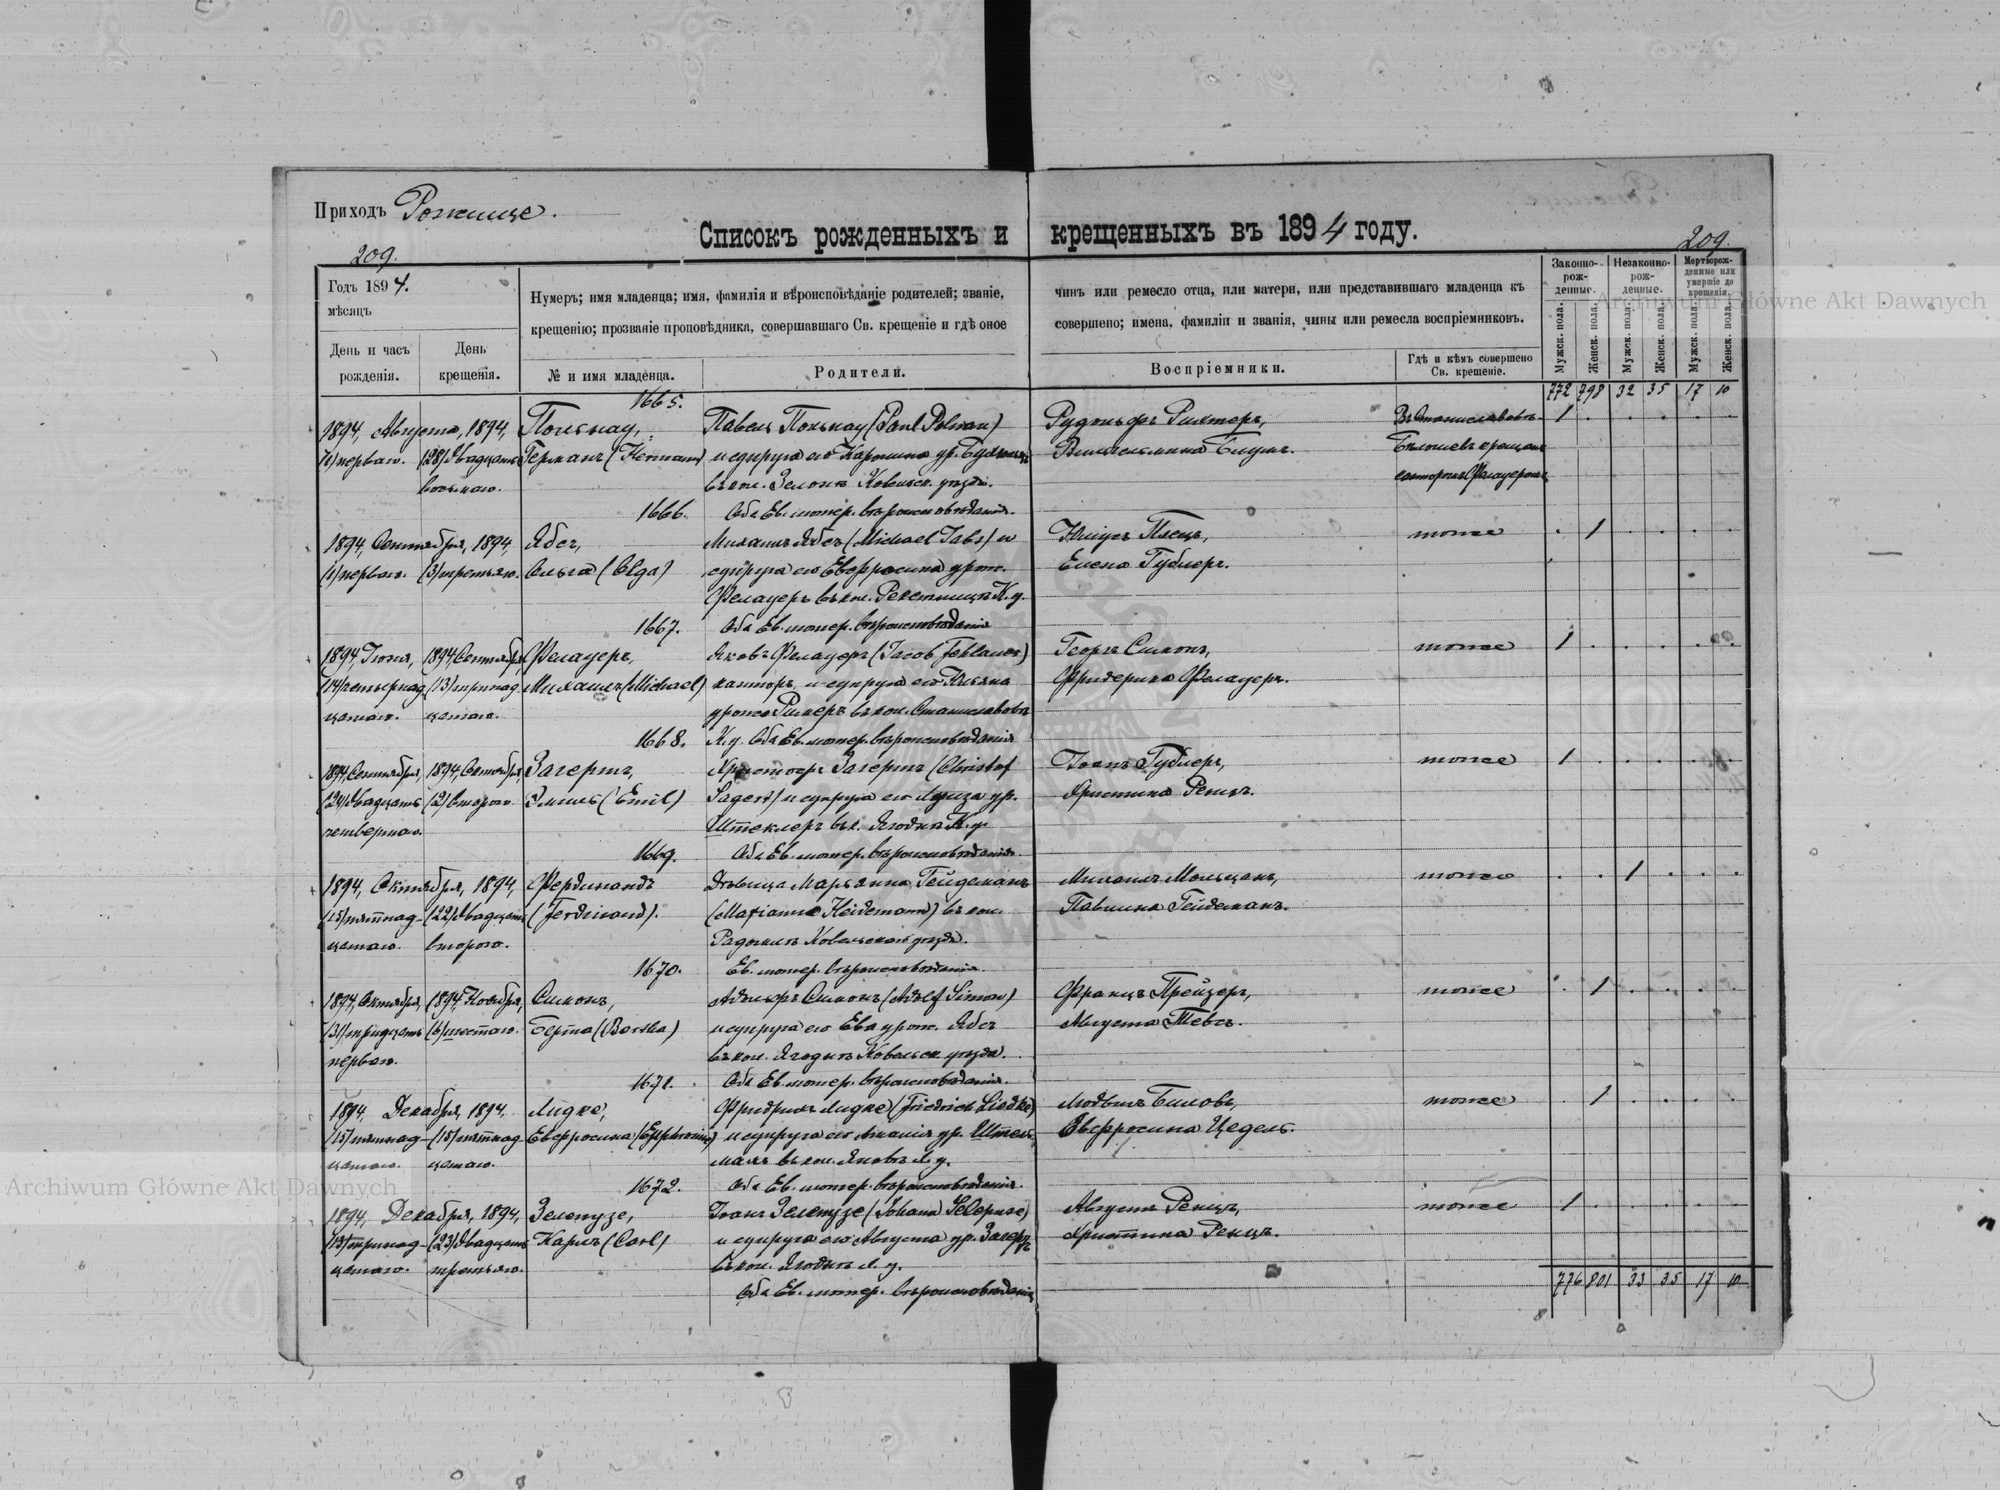 Приходъ Рожище.
Списокъ рожденныхъ и крещенныхъ въ 1894 году.
209.
209.
Годъ 1894.
мѣсяцъ
День и часъ рожденія.
День крещенія.
Нумеръ; имя младенца; имя, фамилія и вѣроисповѣданіе родителей; званіе,
чинъ или ремесло отца, или матери, или представившаго младенца къ
крещенію; прозваніе проповѣдника, совершавшаго Св. крещеніе и гдѣ оное
совершено; имена, фамиліи и званія, чины или ремесла воспріемниковъ.
№ и имя младенца.
Родители.
Воспріемники.
Гдѣ и кѣмъ совершено
Св. крещеніе.
Законно-
рож-
денные.
Незаконно-
рож-
денные.
Мертворож-
денные или
умершіе до
крещенія.
Мужск. пола.
Женск. пола.
Мужск. пола.
Женск. пола.
Мужск. пола.
Женск. пола.
772 798 32 35 17 10
1665.
1894, Августа, 1894,
(1) перваго. (28) двадцать
восьмаго.
Польнау,
Германъ (Hermann)
Павелъ Польнау (Paul Polnau)
и супруга его Каролина ур.
въ кол. Ковельск. уѣзда.
Оба Ев. лютер. вѣроисповѣданія.
Рудольфъ Рихтеръ,
Вильгельмина
Въ Станиславовкѣ
1
1666.
1894, Сентября, 1894,
(1) перваго. (3) третьяго.
Ябсъ,
Ольга (Olga)
Михаилъ Ябсъ (Michael Jabs) и
супруга его Евфросина урож.
Фелауеръ въ кол. К. у.
Оба Ев. лютер. вѣроисповѣданія
Юліусъ
Елена Гублеръ.
тоже
1
1667.
1894 Іюня, 1894 Сентября,
(14) четырнад- (13) тринад-
цатаго. цатаго.
Фелауеръ,
Михаилъ (Michael)
Яковъ Фелауеръ (Jacob Fehlauer)
канторъ, и супруга его
въ кол. Станиславовкѣ
К. у. Оба Ев. лютер. вѣроисповѣданія
Георгъ Симонъ,
Фридерика Фелауеръ.
тоже
1
1668.
1894, Сентября, 1894, Октября
(24) двадцать (2) втораго.
четвертаго.
Загертъ,
Эмиль (Emil)
Христофъ Загертъ (Christof
Sagert) и супруга его Луиза ур.
Штеклеръ въ к. Ягодкѣ К. у.
Оба Ев. лютер. вѣроисповѣданія.
Іоанъ Гублеръ,
Христина Ренцъ.
тоже
1
1669.
1894, Октября, 1894,
(15) пятнад- (22) двадцать
цатаго. втораго.
Фердинандъ
(Ferdinand).
Дѣвица Марьянна Гейдеманъ
(Marianna Heidemann) въ кол.
Ковельскаго уѣзда.
Ев. лютер. вѣроисповѣданія.
Михаилъ
Павлина Гейдеманъ.
тоже
1
1670.
1894, Октября, 1894, Ноября,
(31) тридцать (6) шестаго.
перваго.
Симонъ,
Берта (Bertha)
Адольфъ Симонъ (Adolf Simon)
и супруга его Ева урож. Ябсъ
въ кол. Ягодкѣ Ковельск. уѣзда.
Оба Ев. лютер. вѣроисповѣданія.
Францъ Прейцеръ,
Августа Тевсъ.
тоже
1
1671.
1894, Декабря, 1894.
(15) пятнад- (15) пятнад-
цатаго. цатаго.
Лидке,
Евфросина
Фридрихъ Лидке (Friedrich Liedke)
и супруга его Амалія ур.
въ кол. Яновкѣ Л. у.
Оба Ев. лютер. вѣроисповѣданія.
Людвихъ Биловъ,
Евфросина Цедель.
тоже
1
1672.
1894, Декабря, 1894,
(13) тринад- (23) двадцать
цатаго. третьяго.
Зелепузе,
Карлъ (Carl)
Іоанъ Зелепузе (Johann
и супруга его Августа ур. Загертъ
въ кол. Ягодкѣ Л. у.
Оба Ев. лютер. вѣроисповѣданія
Августъ Ренцъ,
Христина Ренцъ.
тоже
1
776 801 33 35 17 10
Archiwum Główne Akt Dawnych
Archiwum Główne Akt Dawnych